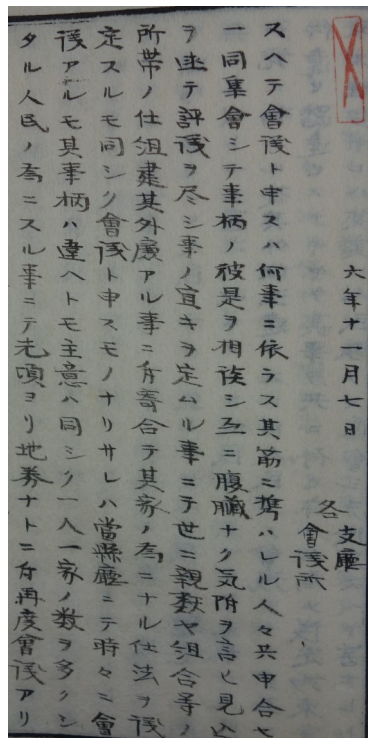 六年十一月七日
各
支廳
會議所
スヘテ會議ト申スハ何事ニ依ラス其筋ニ携ハレル人々共申合セ
一同集會シテ事柄ノ彼是ヲ相談シ互ニ腹臓ナク気附ヲ言ヒ見込
ヲ述テ評議ヲ尽シ事ノ宜キヲ定ムル事ニテ世ニ親類ヤ組合等ノ
所帯ノ仕組建其外慶アル事ニ付寄合テ其家ノ為ニナル仕法ヲ議
定スルモ同シク會議ト申スモノナリサレハ當縣廳ニテ時々ニ會
議アルモ其事柄ハ違ヘトモ主意ハ同シク一人一家ノ数ヲ多クシ
タル人民ノ為ニスル事ニテ先頃ヨリ地券ナトニ付再度會議アリ